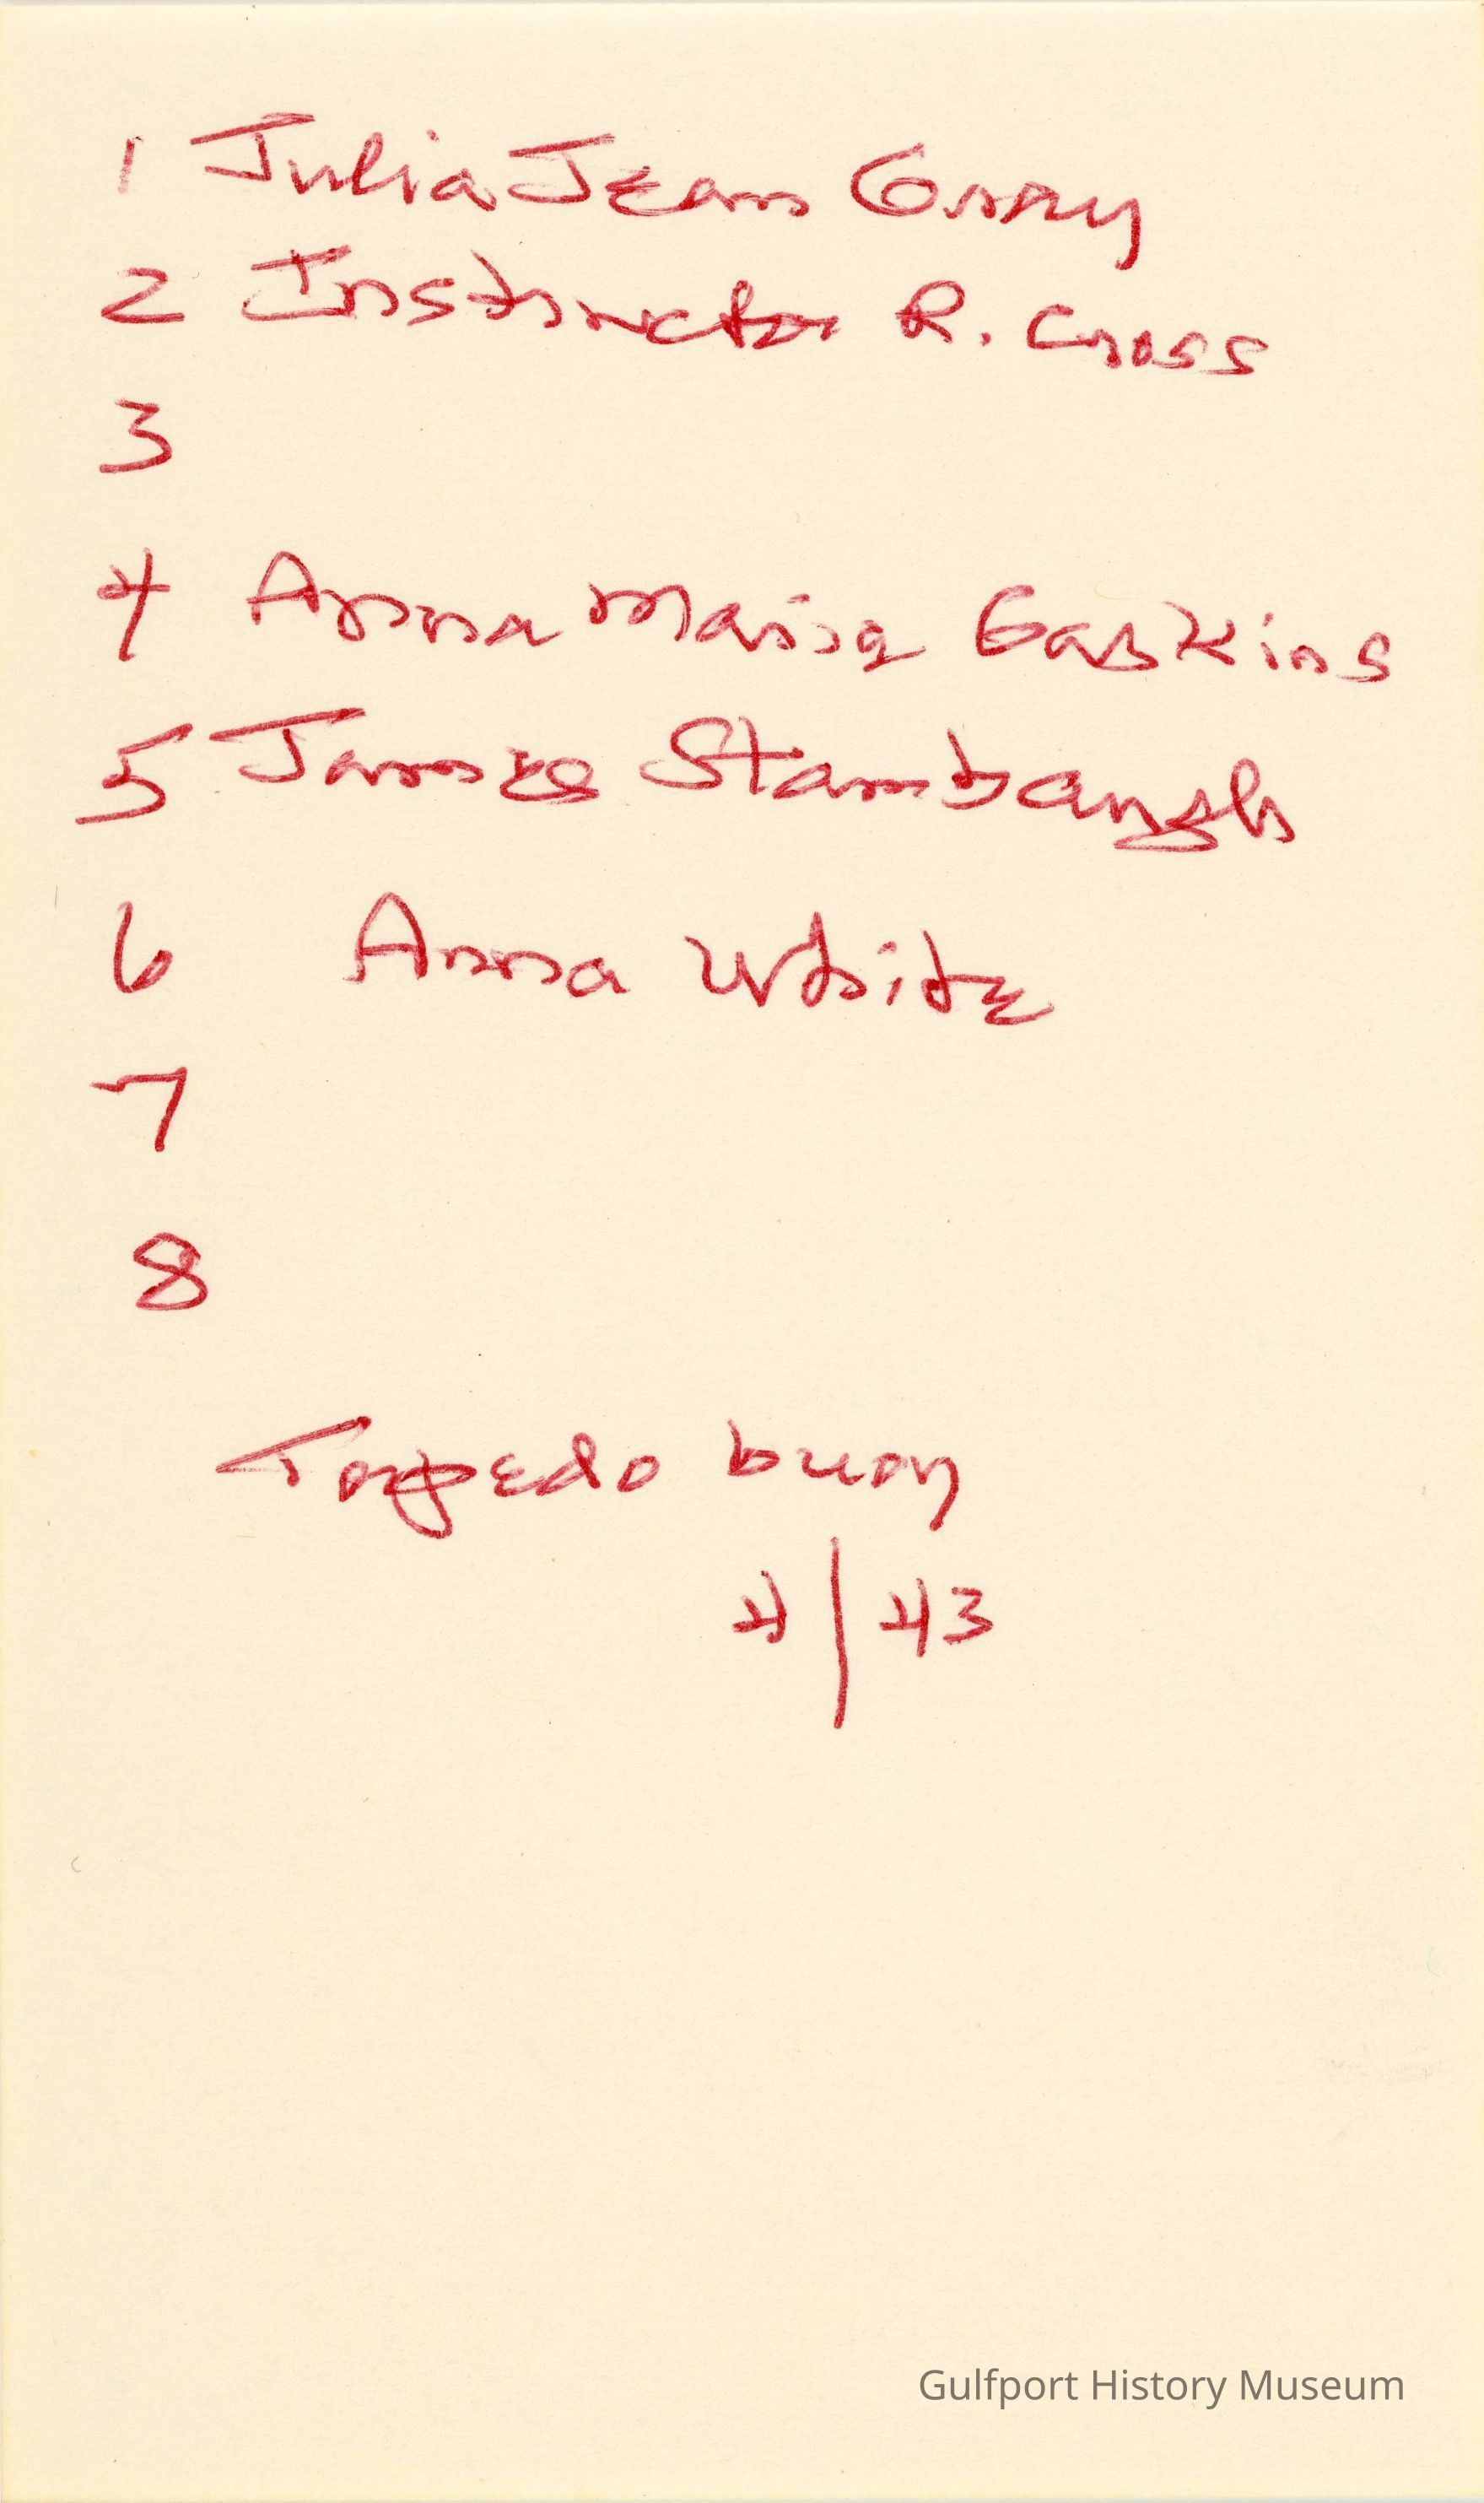 1 Julia Jean Gray
2 Instructor R. Cross
3
4 Anna Maria Gaskins
5 James Stambaugh
6 Anna White
7
8
Torpedo buoy
4 | 43
Gulfport History Museum